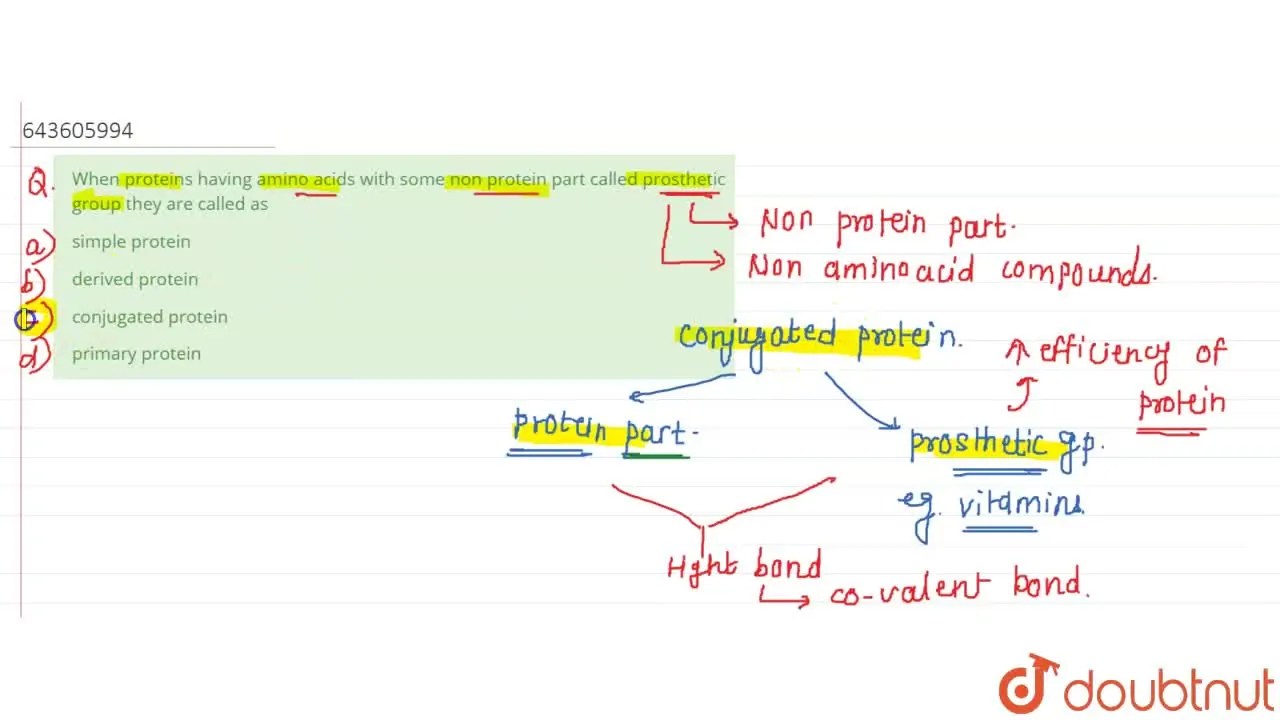 643605994
Q. When proteins having amino acids with some non protein part called prosthetic
group they are called as
a) simple protein
b) derived protein
conjugated protein
d) primary protein
Non protein part.
Non aminoacid compounds.
conjugated protein.
efficiency of
protein
protein part.
prosthetic gp.
eg. vitamins.
tight bond
co-valent bond.
doubtnut